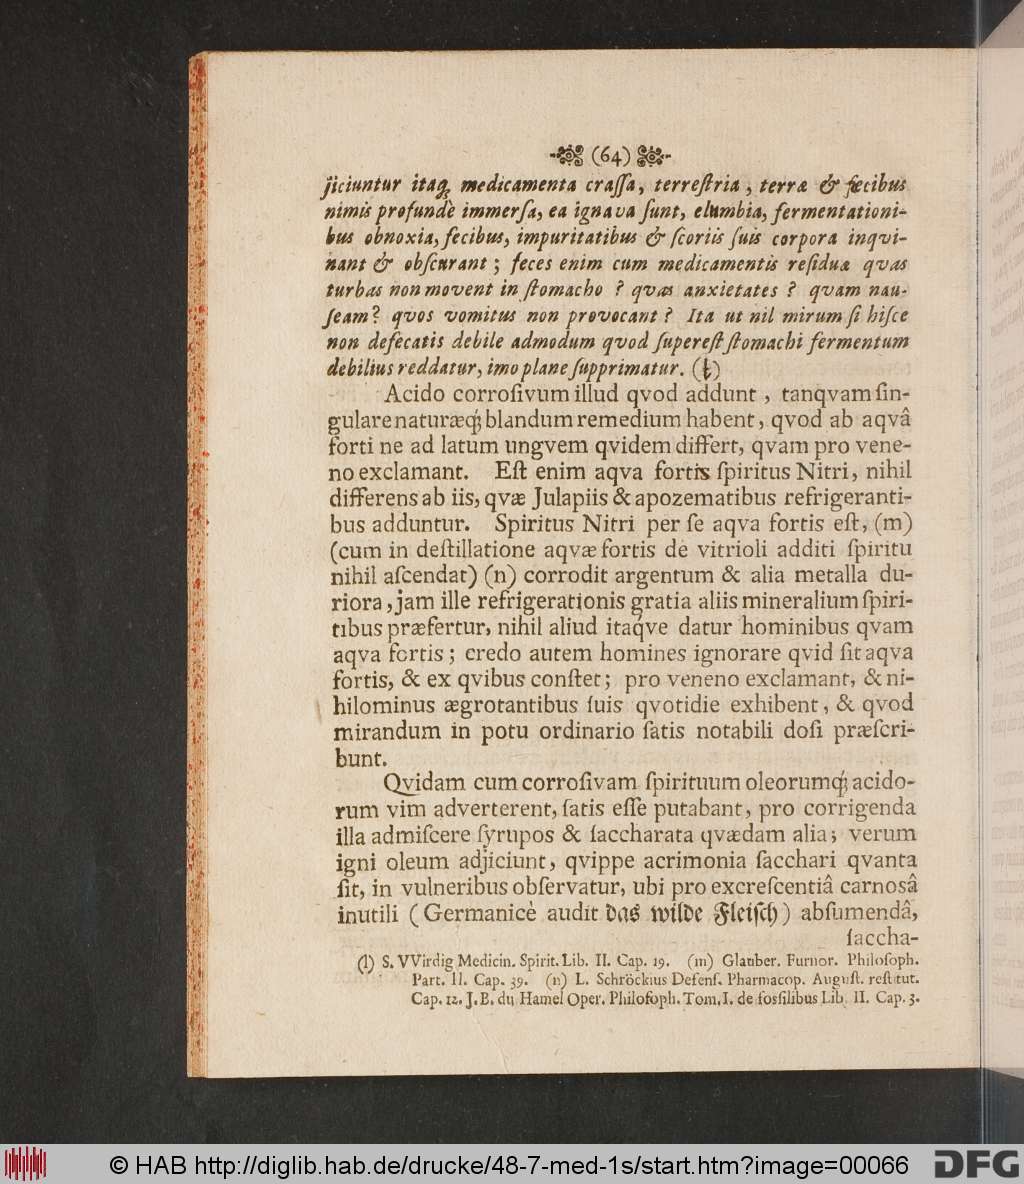 (64)
jiciuntur itaq; medicamenta craſſa, terreſtria, terræ & fæcibus
nimis profundè immerſa, ea ignava ſunt, elumbia, fermentationi-
bus obnoxia, fecibus, impuritatibus & ſcoriis ſuis corpora inqvi-
nant & obſcurant; feces enim cum medicamentis reſiduæ qvas
turbas non movent in ſtomacho? qvas anxietates? qvam nau-
ſeam? qvos vomitus non provocant? Ita ut nil mirum ſi hiſce
non defecatis debile admodum qvod ſupereſt ſtomachi fermentum
debilius reddatur, imo plane ſupprimatur. (l)
Acido corroſivum illud qvod addunt, tanqvam ſin-
gulare naturæq; blandum remedium habent, qvod ab aqvâ
forti ne ad latum ungvem qvidem differt, qvam pro vene-
no exclamant. Eſt enim aqva fortis ſpiritus Nitri, nihil
differens ab iis, qvæ Julapiis & apozematibus refrigeranti-
bus adduntur. Spiritus Nitri per ſe aqva fortis eſt, (m)
(cum in deſtillatione aqvæ fortis de vitrioli additi ſpiritu
nihil aſcendat) (n) corrodit argentum & alia metalla du-
riora, jam ille refrigerationis gratia aliis mineralium ſpiri-
tibus præfertur, nihil aliud itaqve datur hominibus qvam
aqva fortis; credo autem homines ignorare qvid ſit aqva
fortis, & ex qvibus conſtet; pro veneno exclamant, & ni-
hilominus ægrotantibus ſuis qvotidie exhibent, & qvod
mirandum in potu ordinario ſatis notabili doſi præſcri-
bunt.
Qvidam cum corroſivam ſpirituum oleorumq; acido-
rum vim adverterent, ſatis eſſe putabant, pro corrigenda
illa admiſcere ſyrupos & ſaccharata qvædam alia; verum
igni oleum adjiciunt, qvippe acrimonia ſacchari qvanta
ſit, in vulneribus obſervatur, ubi pro excreſcentiâ carnosâ
inutili (Germanicè audit das wilde Fleiſch) abſumendâ,
ſaccha-
(l) S. VVirdig Medicin. Spirit. Lib. II. Cap. 19. (m) Glauber. Furnor. Philoſoph.
Part. II. Cap. 39. (n) L. Schröckius Defenſ. Pharmacop. Auguſt. reſtitut.
Cap. 12. J. B. du Hamel Oper. Philoſoph. Tom. I. de foſſilibus Lib. II. Cap. 3.
© HAB http://diglib.hab.de/drucke/48-7-med-1s/start.htm?image=00066
DFG